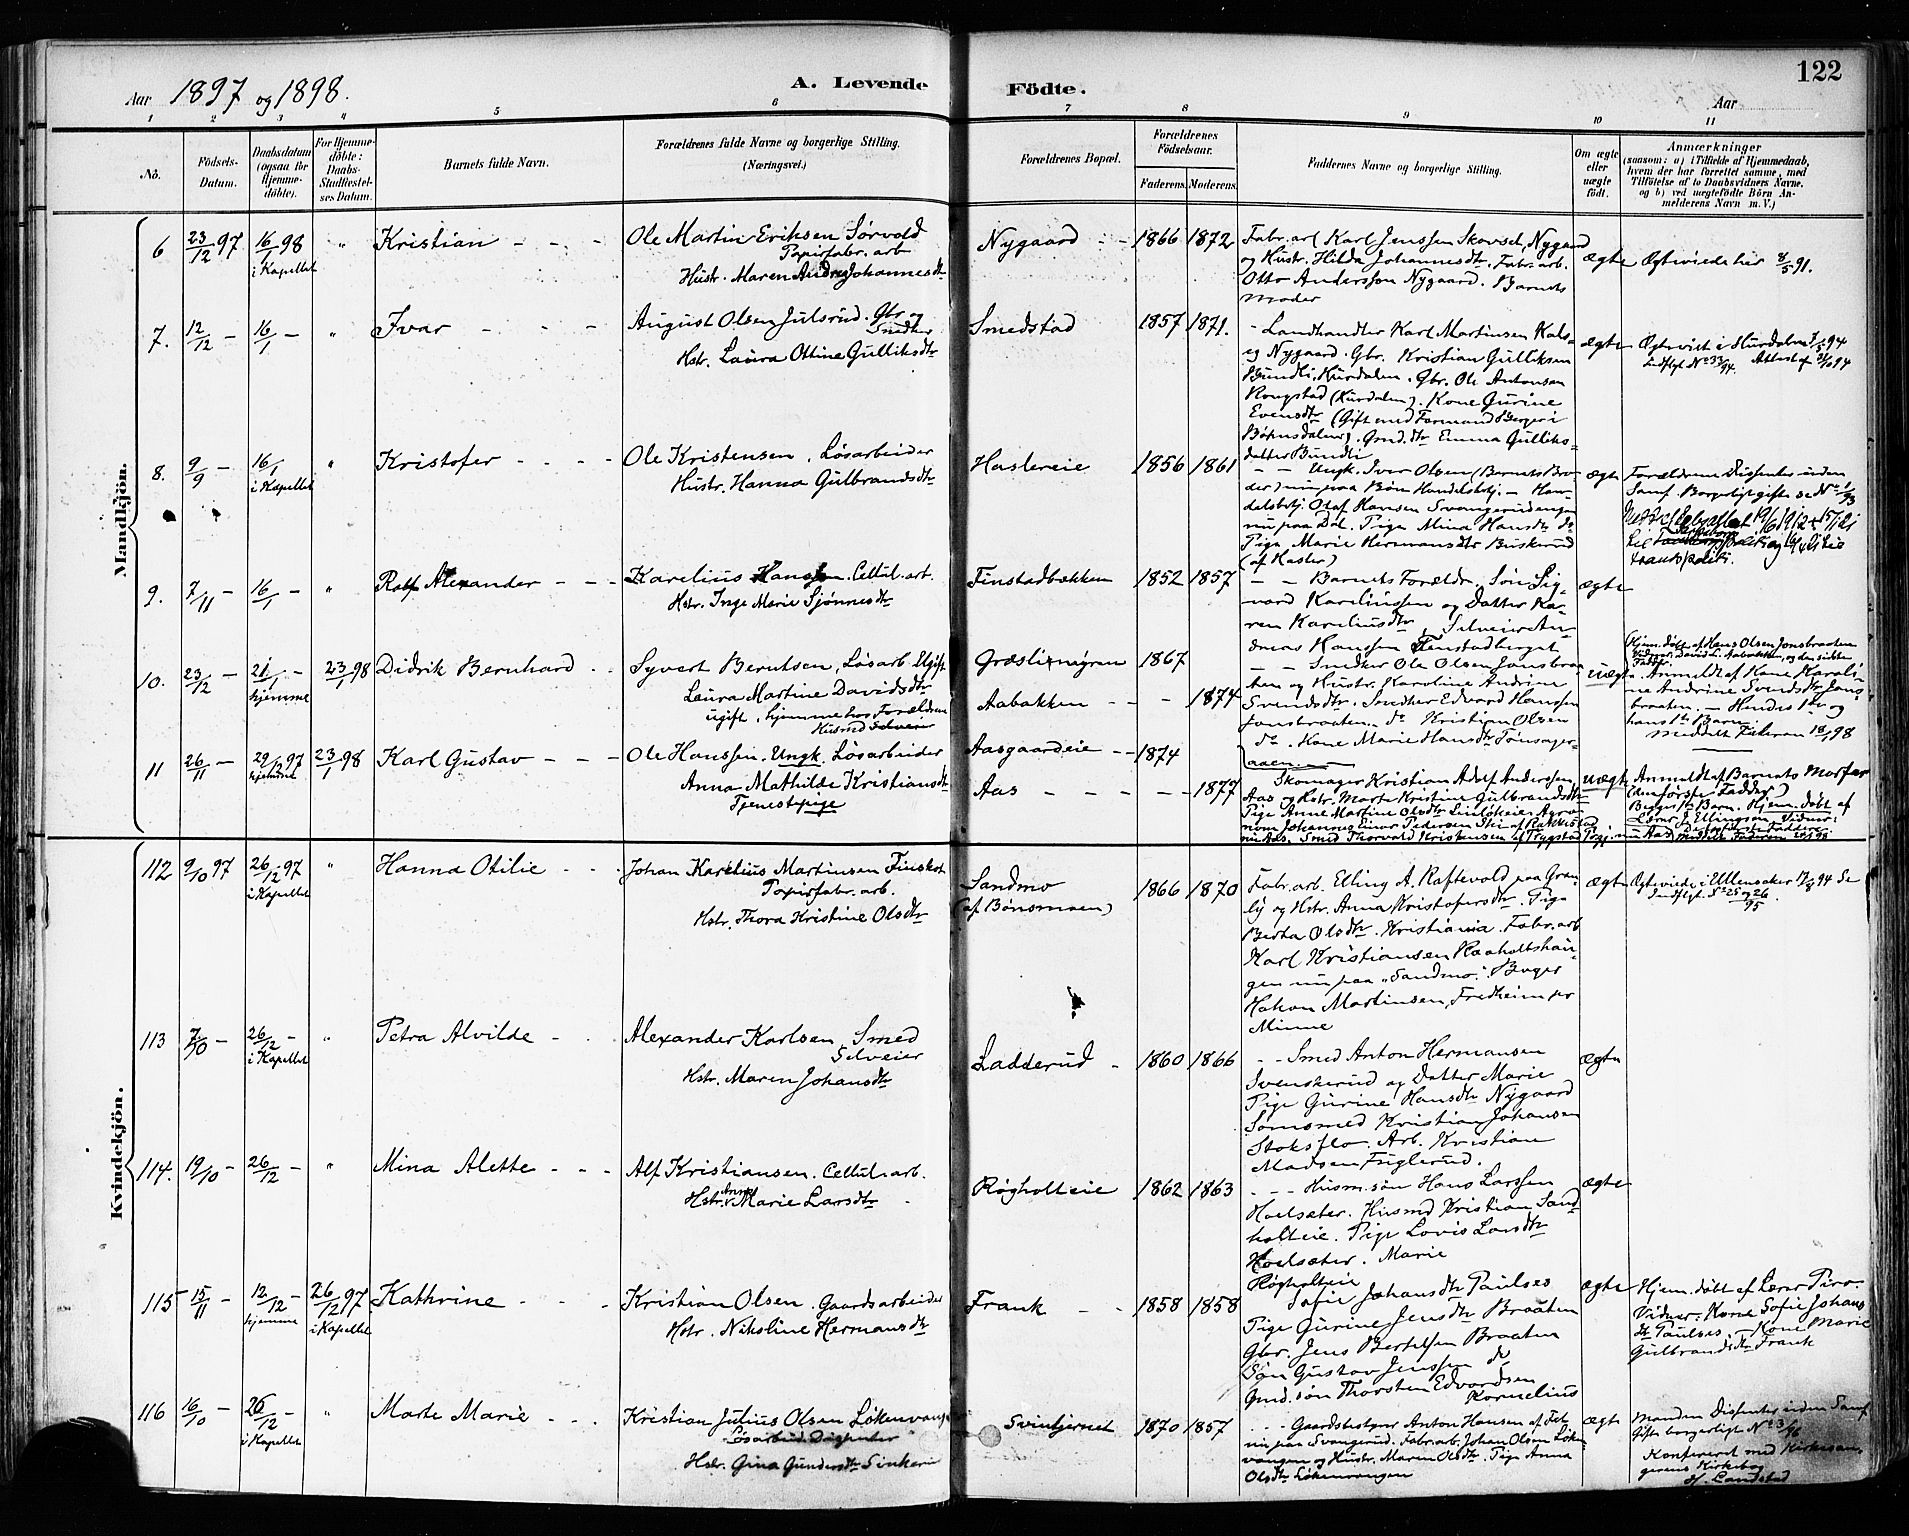 Aar 1897 og 1898.
A. Levende Födte.
122
Aar
1 2 3 4 5 6 7 8 9 10 11
No.
Födsels-
Datum.
Daabsdatum
(ogsaa for
Hjemme-
döbte).
For Hjemme-
döbte:
Daabs-
Stadfæstel-
ses Datum.
Barnets fulde Navn.
Forældrenes fulde Navne og borgerlige Stilling.
(Næringsvei.)
Forældrenes Bopæl.
Forældrenes
Födselsaar.
Faderens. Moderens.
Faddernes Navne og borgerlige Stilling.
Om ægte
eller
uægte
födt.
Anmærkninger
(saasom: a) i Tilfælde af Hjemmedaab,
hvem der har forrettet samme, med
Tilföielse af to Daabsvidners Navne.
og b) ved uægtefödte Börn An-
melderens Navn m. V.)
Mandkjön.
6 23/12 97 16/1 98 i Kapellet " Kristian
Ole Martin Eriksen Sørvold
Papirfabr. arb
Hustr. Maren Andrea Johannesdtr
Nygaard 1866 1872
Fabr. arb Karl Jenssen Skovset, Nygaard
og Hustr. Hilda Johannesdtr. Fabr. arb.
Otto Anderssen Nygaard. Barnets
Moder
ægte Ægteviede her 8/5 91.
7. 12/12 – 16/1 – " Ivar
August Olsen Julsrud. Gbr. og
Snedker
Hstr. Laura Ottine Gulliksdtr
Smedstad 1857 1871.
- Landhandler Karl Martinsen Kals-
eg Nygaard. Gbr. Kristian Gulliksen
Bundli, Hurdalen. Gbr. Ole Antonsen
Rongstad (Hurdalen). Kone Gurine
Evensdtr (Gift med Formand Berger i
Bøhnsdalen). Gmd. dtr Emma Gulliks-
datter Bundli
ægte Ægteviet i Hurdalen 94
Indflgt. No 33/94. Attest af 94
8. 9/9 – 16/1 i Kapellet " Kristofer
Ole Kristensen. Løsarbeider
Hustr. Hanna Gulbrandsdtr
Haslereie 1856 1861
– – Ungk. Iver Olsen (Barnets Bro-
der) nu paa Bøn Handelsbetj. – Han-
delsbetj. Olaf Hansen Svangerudengen
nu paa Dal. Pige Mina Hansdtr do
Pige Marie Hermansdtr Buskerud
(af Hasler)
ægte Forældrene Dissenter uden
Samf. Borgerligt gifte se No 1/93
9. 7/11 – 16/1 – " Rolf Alexander
Karelius Hanssen. Cellul. arb.
Hstr. Inge Marie Sjønnesdtr
Finstadbækken 1852 1857
– – Barnets Forældr. Søn Sig-
vard Kareliussen og Datter Ka-
ren Kareliusdtr, Selveier An-
dreas Hanssen Finstadberget
ægte
10. 23/12 – 21/1 – hjemme 23/1 98 Didrik Bernhard
Syvert Berntsen, Løsarb. Ugift
Laura Martine Davidsdtr
ugift, hjemme hos Forældrene
Husmd Selveier
Græslimigren 1867
Aabakken 1874
– – Snedker Ole Olsen Jonsbraa-
ten og Hustr. Karoline Andrine
Svendsdtr. Snedker Edvard Hanssen
Jonsbraaten. do Kristian Olsen
do. Kone Marie Hansdtr Tønsager-
aaen
uægte Hjem. døbt af Hans Olsen Jonsbraaten
Vidner David L. Aabakken, og den sidste
Fadder.
Anmeldt af Kone Karoli-
ne Andrine Svendsdtr Jons-
braaten. – Hendes 1ste og
hans 1ste Barn.
meddelt Faderen 18/1 98
11 26/11 – 29/12 97 hjemme 23/1 98 Karl Gustav
Ole Hanssen. Ungk. Løsarbeider
Anna Mathilde Kristiansdtr
Tjenestepige
Aasgaardeie 1874
Aas 1877
Skomager Kristian Adolf Anderssen
Aas og Hstr. Marte Kristine Gulbrandsdtr
Pige Anne Martine Olsdtr Linløkeie Agro-
nom Johannes Einar Pedersen Ski af Rakkestad
nu Aas. Smed Thorvald Kristensen af Trygstad Prgj. nu Aas
uægte Anmeldt af Barnets Morfar
(den første Fadder)
Begges 1ste Barn. Hjem. døbt af
Lærer J. Ellingsen. Vidner:
De første Faddere.
Meddelt Faderen 98
Kvindekjön.
112 9/10 97 26/12 97 i Kapellet " Hanna Otilie
Johan Karelius Martinsen Finskot
Papirfabr. arb.
Hstr. Thora Kristine Olsdtr
Sandmo
(af Bønsmoen) 1866 1870
Fabr. arb. Elling A. Raftevold paa Gran-
ly og Hstr. Anna Kristofersdtr. Pige
Berta Olsdtr. Kristiania. Fabr. arb
Karl Kristiansen Raaholtshau-
gen nu paa "Sandmo". Bager
Hakon Martinsen, Fredheim pr
Minne
ægte Ægteviede i Ullensaker 94 Se
Indflgt. No 25 og 26/95
113 7/10 – 26/12 – i Kapellet " Petra Alvilde
Alexander Karlsen, Smed
Selveier
Hstr. Maren Johansdtr
Ladderud 1860 1866
– – Smed Anton Hermansen
Svenskerud og Datter Marie
Pige Gurine Hansdtr Nygaard
Sømsmed Kristian Johansen
Stoksflo. Arb. Kristian
Madsen Fuglerud.
ægte
114. 19/10 – 26/12 – " Mina Alette
Alf Kristiansen. Cellul. arb.
Hstr. Anne Marie Larsdtr
Røgholteie 1862 1863
– – – Husm. søn Hans Larssen
Hoelsæter. Husmd Kristian Sand-
holteie. Pige Lovis Larsdtr
Hoelsæter. Marie
Røgholteie
ægte
115 15/11 – 12/12 – hjemme 26/12 97 i Kapellet Kathrine
Kristian Olsen. Gaardsarbeider
Hstr. Nikoline Hermansdtr
Frank 1858 1858
Sofie Johansdtr Paulses
Pige Gurine Jensdtr Braaten
Gbr. Jens Bertelsen Braaten
Søn Gustav Jenssen do
Gmd. søn Thorsten Edvardsen
Kornelius
ægte Hjem. døbt af Lærer Piro.
Vidner: Kone Sofie Johans
dtr Paulses. – Kone Marie
Gulbrandsdtr Frank
116 16/10 – 26/12 – i Kapellet " Marte Marie
Kristian Julius Olsen Løkenvangen
Løsarbeid. Dissenter
Hstr. Gina Gundersdtr Sinkerud
Svintjernet 1870 1857
– – Gaardsbestyrer Anton Hansen af Fet
nu paa Svangerud. Fabr. arb. Johan Olsen Løken-
vangen og Hustr. Maren Olsdtr. Pige Anna
Olsdtr Løkenvangen
ægte Manden Dissenter uden Samf
Gifte borgerligt No 3/96
Konfereret med Kirkesan-
gerens Kirkebog
H. Landstad